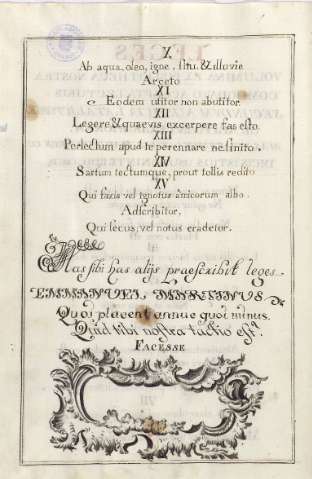 X
Ab aqua, oleo, igne, situ, & illuvie
Arceto
XI
Eodem utitor non abutitor.
XII
Legere & quaevis excerpere fas esto.
XIII
Perlectum apud te perennare ne sinito.
XIV
Sartum tectumque, prout tollis reddito
XV
Qui faxis vel ignotus amicorum albo
Adscribitor.
Qui secus, vel notus eradetor.
Has sibi has alijs praefixibit leges
EMMANUEL MARTINUS
Quoi placent annue quoi minus.
Quid tibi nostra tactio est?
FACESSE